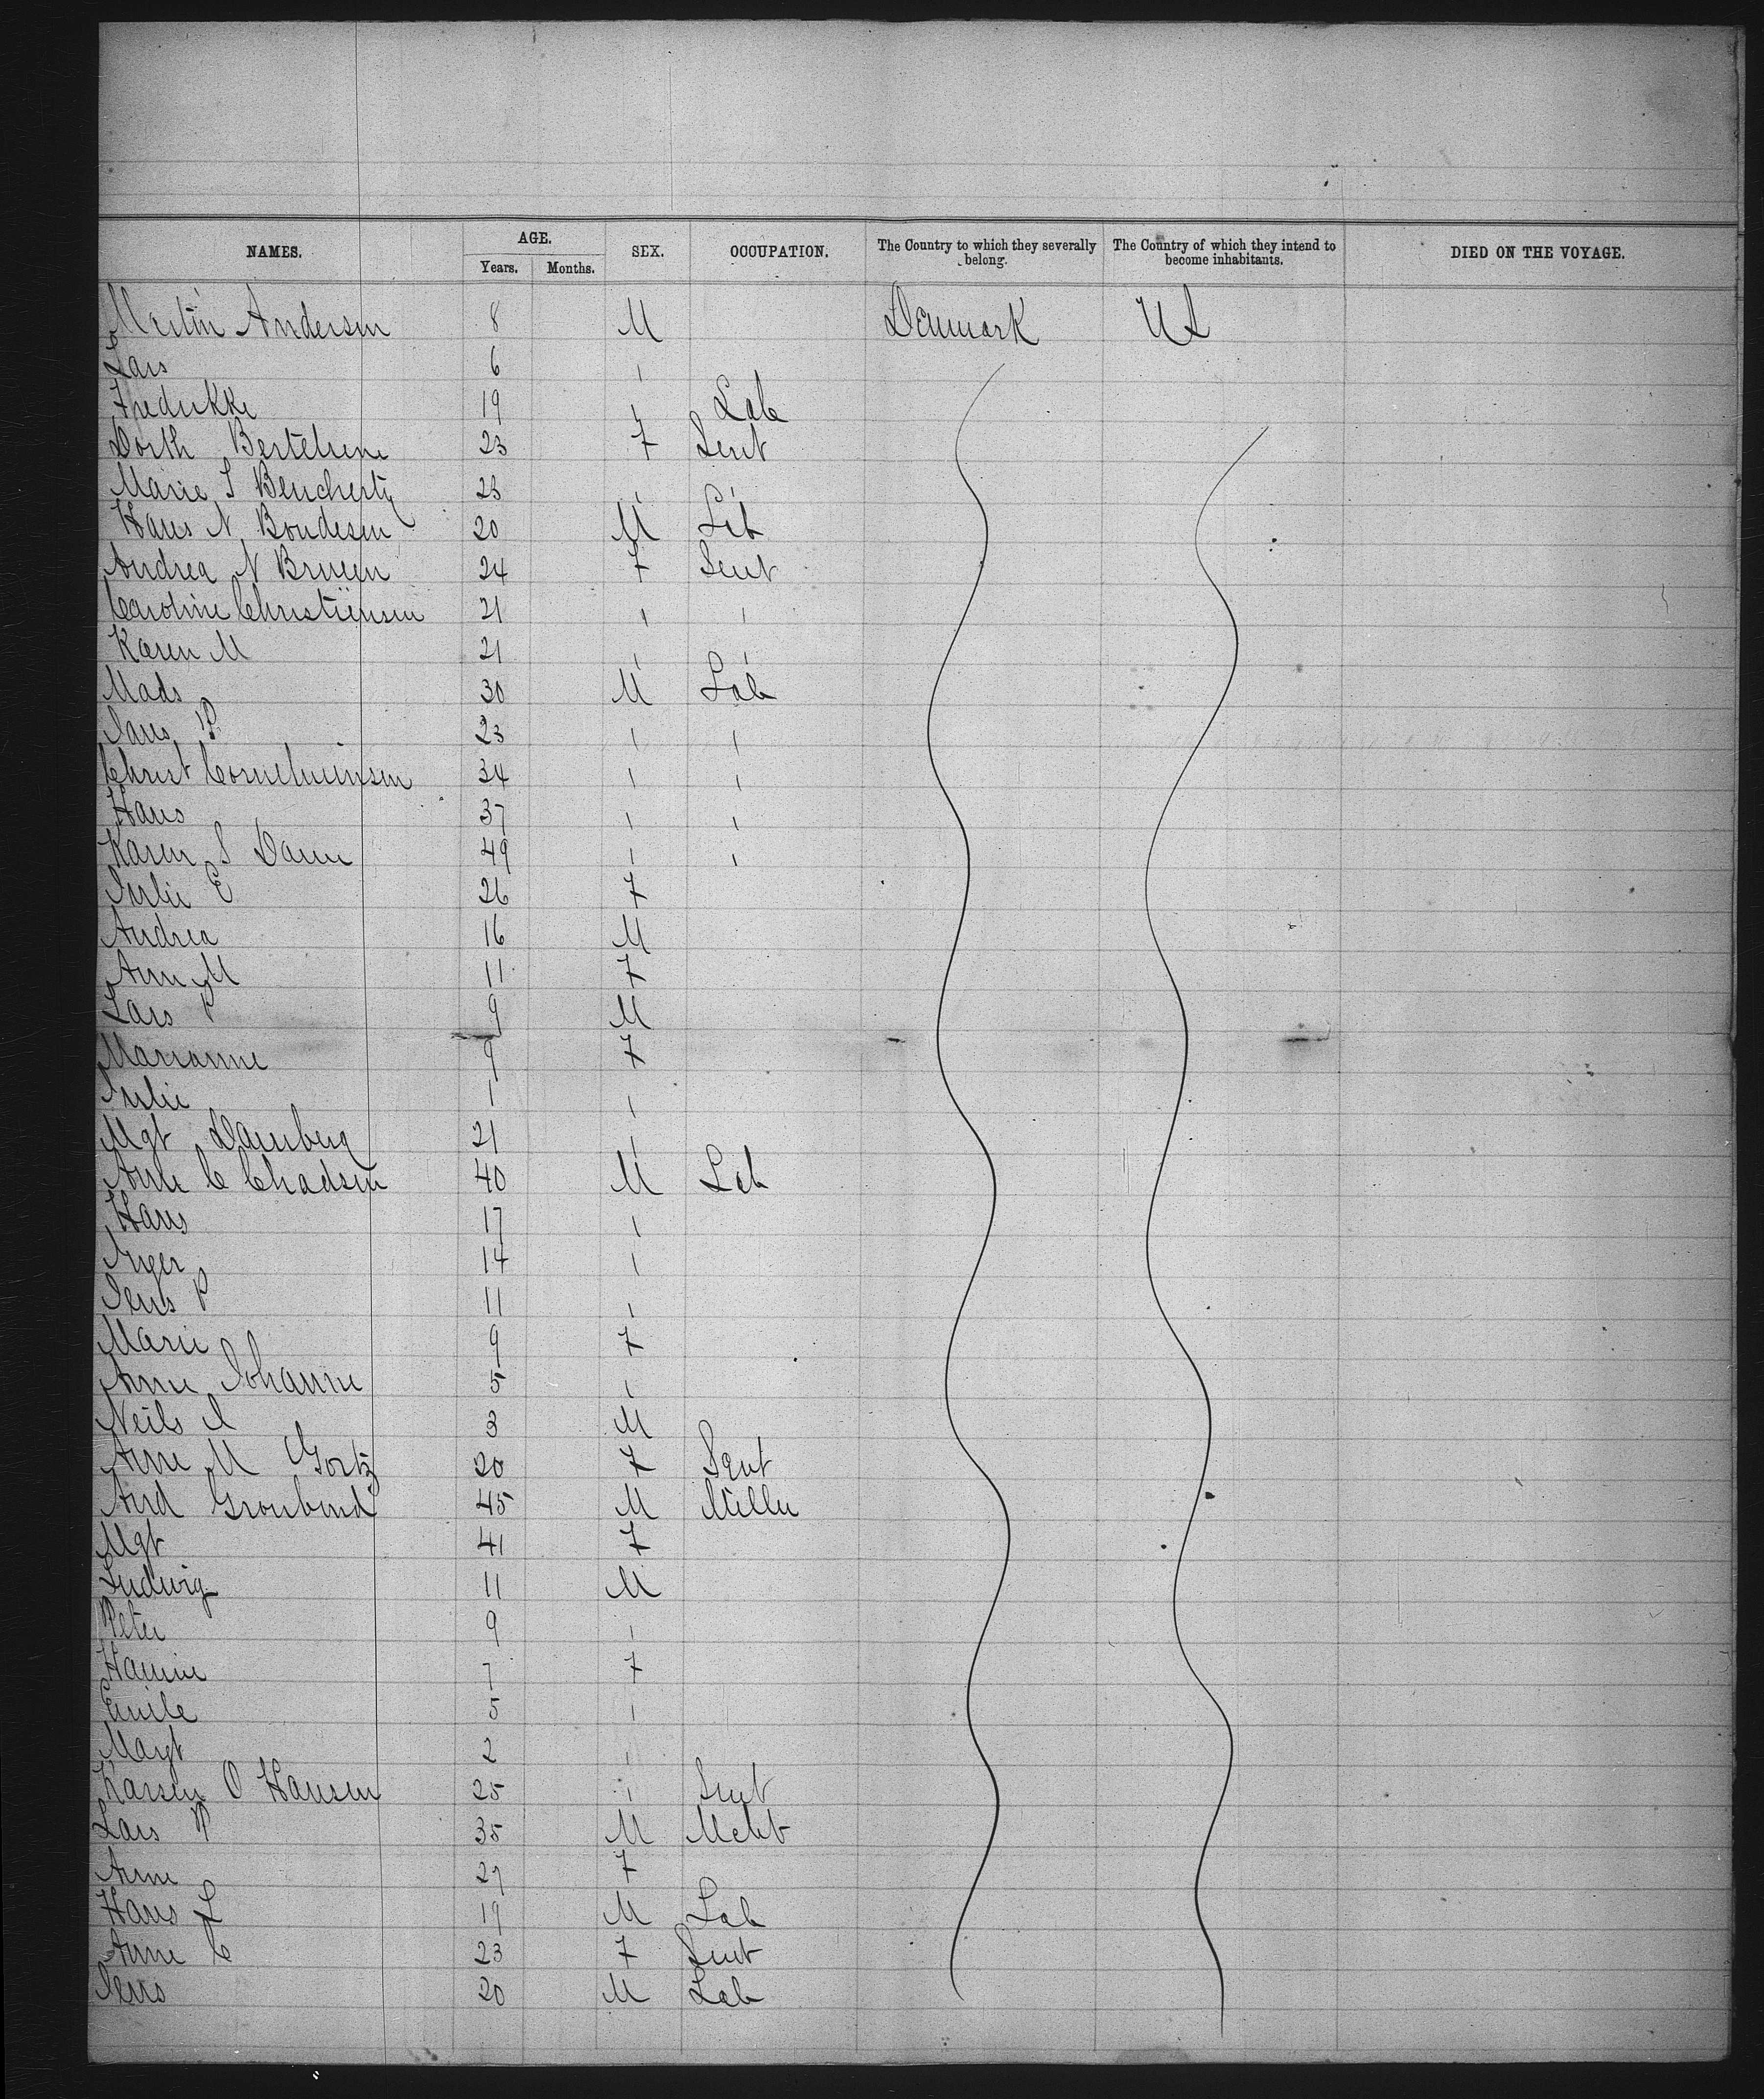 NAMES. AGE. SEX. OCCUPATION. The Country to which they severally belong. The Country of which they intend to become inhabitants. DIED ON THE VOYAGE.
Years. Months.
Martin Andersen 8 M Denmark US
Lars 6 "
Fredrikke 19 " Lab
Dorth Bertelsene 23 F Servt
Marie S 23 " "
Hans N Bondesen 20 M Lab
Andrea N Bruun 24 F Servt
Caroline Christiensen 21 " "
Karen M 21 " "
Mads 30 M Lab
Jans P 23 " "
Christ 34 " "
Hans 37 " "
Karen S Damm 49 " "
Julie E 26 F
Andrea 16 M
Ane M 11 F
Lars P 9 M
Marianne 9 F
Julie 1 "
Mgt Damberg 21 "
Anne C Chadsen 40 M Lab
Hans 17 "
Inger 14 "
Jens P 11 "
Marie 9 F
Anne Johanne 5 "
Neils J 3 M
Anne M Gortz 20 F Servt
And 45 M Miller
Mgt 41 F
Ludwig 11 M
Peter 9 "
Hannie 7 F
Emile 5 "
Margt 2 "
Karsen O Hansen 25 " Servt
Lars P 35 M
Anne 27 F
Hans L 19 M Lab
Anne C 23 F Servt
Jens 20 M Lab